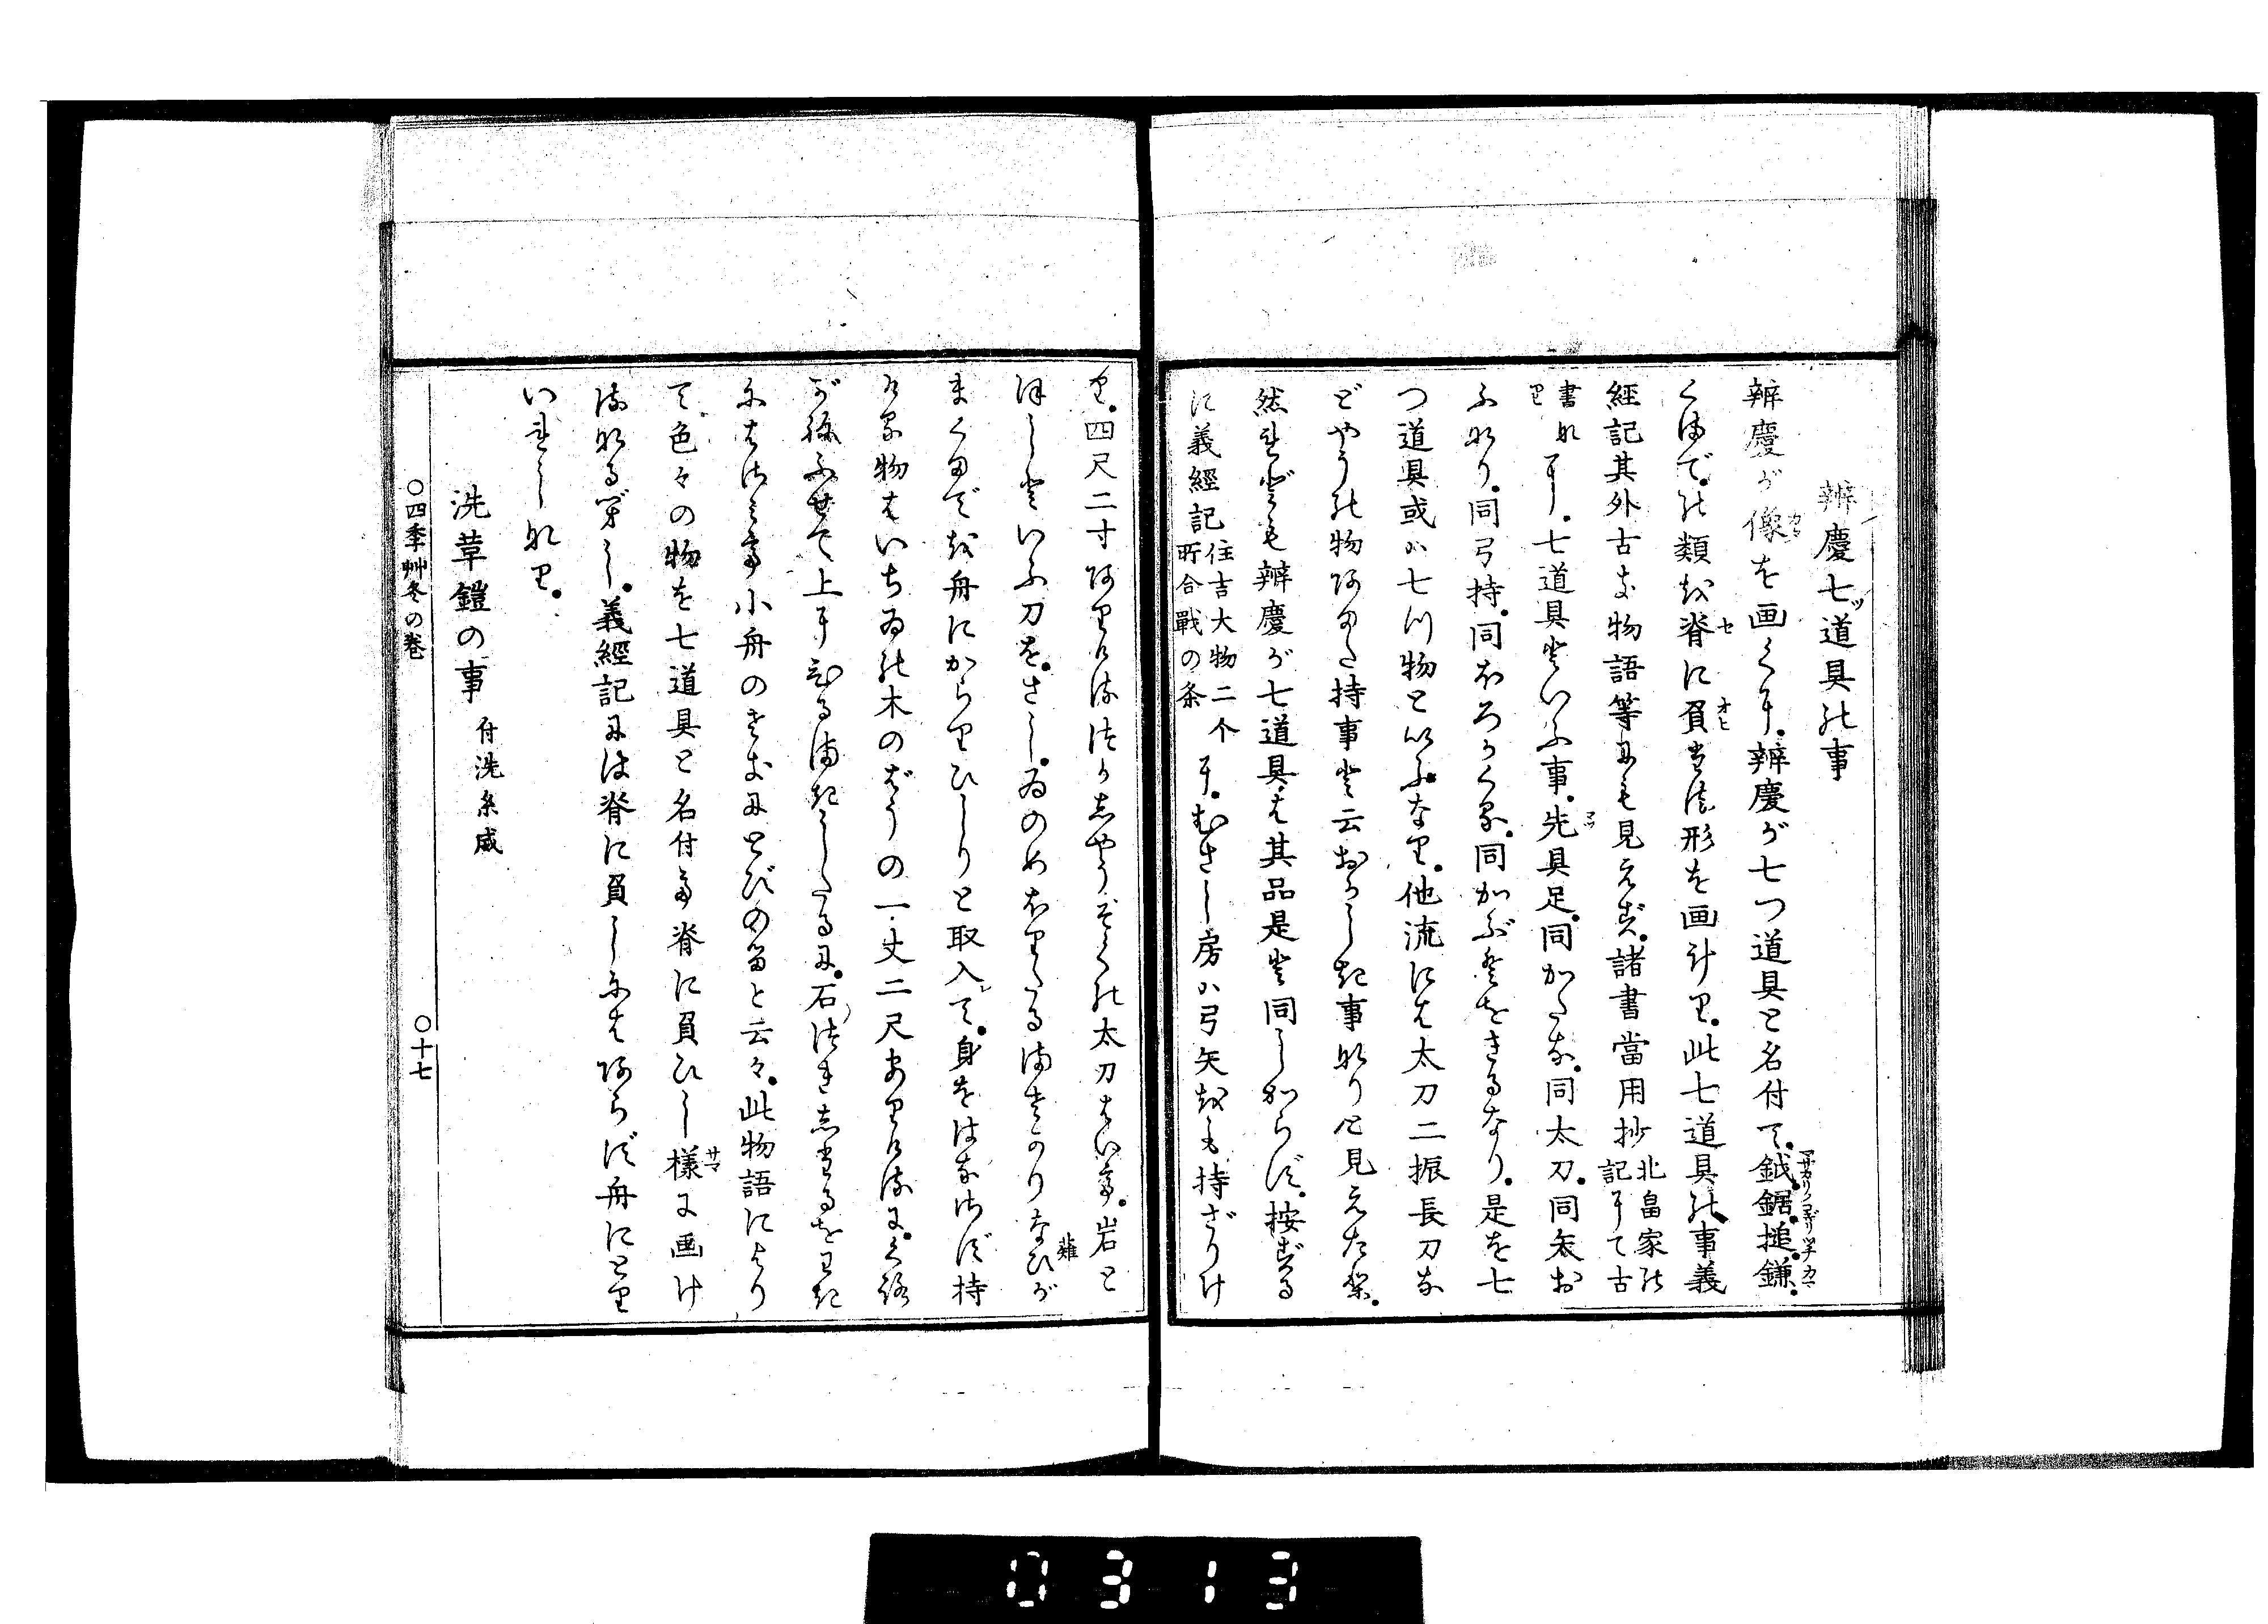 辨慶七ツ道具の事
辨慶が像を画くに。辨慶が七つ道具と名付て。鉞。鋸。槌。鎌。
くまで。の類を脊に負たる形を画けり。此七道具の事義
經記其外古き物語等にも見えず。諸書當用抄北畠家の記にて古
書なり に。七道具といふ事。先具足。同かたな。同太刀。同矢お
ふなり。同弓持。同ほろかくる。同かぶとをきるなり。是を七
つ道具或は七つ物といふなり。他流には太刀二振長刀な
どやうの物あまた持事と云おかしき事なりと見えたり。
然れども辨慶が七道具は其品是と同じからず。按ずる
に義經記住吉大物二个所合戰の条 に。むさし房は弓矢をも持ざりけ
り。四尺二寸ありけるつかしやうぞくの太刀はいて。岩と
ほしといふ刀を。さし。ゐのめほりたるまさかりなひがま
まくまでを舟にからりひしりと取入て。身をはなさず持
ける物はいちゐの木のぼうの一丈二尺ありけるに。くろ
がねふせて上にひるまきしたるに。石づきしたるをわき
にはさみて小舟のきおにとびのると云々。此物語により
て。色々の物を七道具と名付て脊に負ひし様に画け
るなるべし。義經記には脊に負しにはあらず舟にとり
いれしなり。
洗革鎧の事 付洗糸威
〇四季艸冬の巻 〇十七
0313